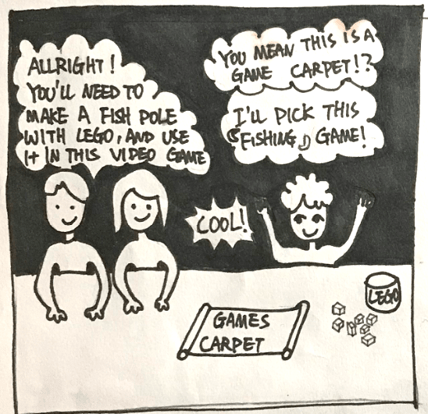 ALLRIGHT!
YOU'LL NEED TO
MAKE A FISH POLE
WITH LEGO, AND USE
It IN THIS VIDEO GAME
YOU MEAN THIS IS A
GAME CARPET!?
I'LL PICK THIS
『FISHING』 GAME!
COOL!
GAMES
CARPET
LEGO